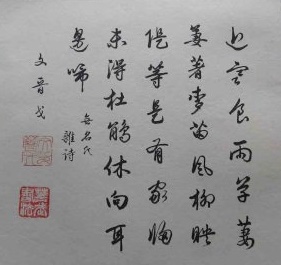 近寒食雨草萋
萋著麥苗風柳映
堤等是有家歸
未得杜鵑休向耳
邊啼
无名氏
雜詩
文晋戈